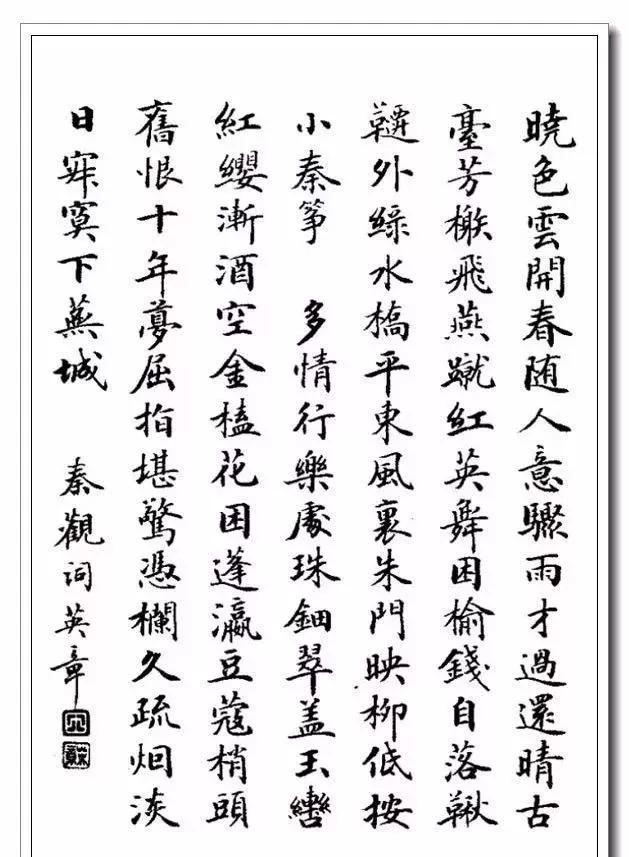 晓色雲開春随人意驟雨才過還晴古
臺芳榭飛燕蹴紅英舞困榆錢自落鞦
韆外綠水橋平東風裏朱門映柳低按
小秦筝 多情行樂處珠鈿翠盖玉轡
紅纓漸酒空金榼花困蓬瀛豆蔻梢頭
舊恨十年夢屈指堪驚憑欄久疏烟淡
日寂寞下蕪城 秦觀词英章